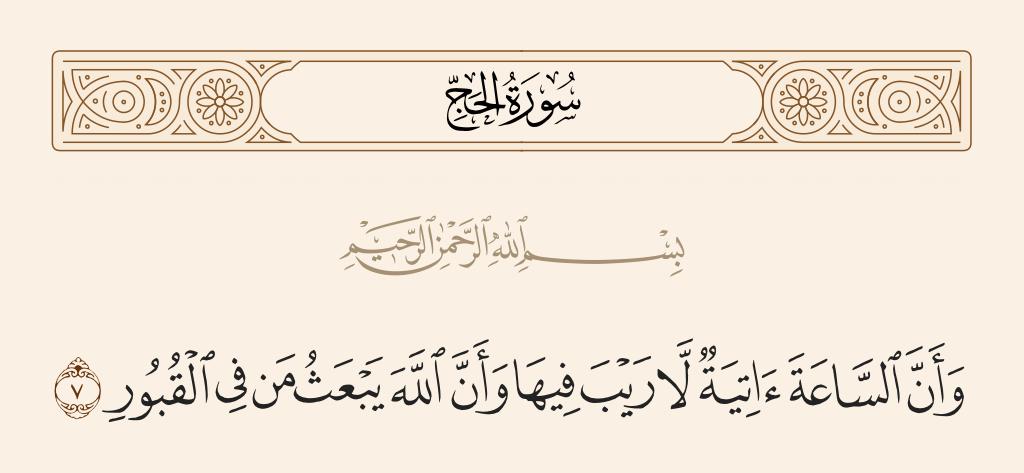 سُورَةُ الْحَجِّ
بِسْمِ ٱللَّهِ ٱلرَّحْمَٰنِ ٱلرَّحِيمِ
وَأَنَّ ٱلسَّاعَةَ ءَاتِيَةٌ لَّا رَيْبَ فِيهَا وَأَنَّ ٱللَّهَ يَبْعَثُ مَن فِى ٱلْقُبُورِ ٧